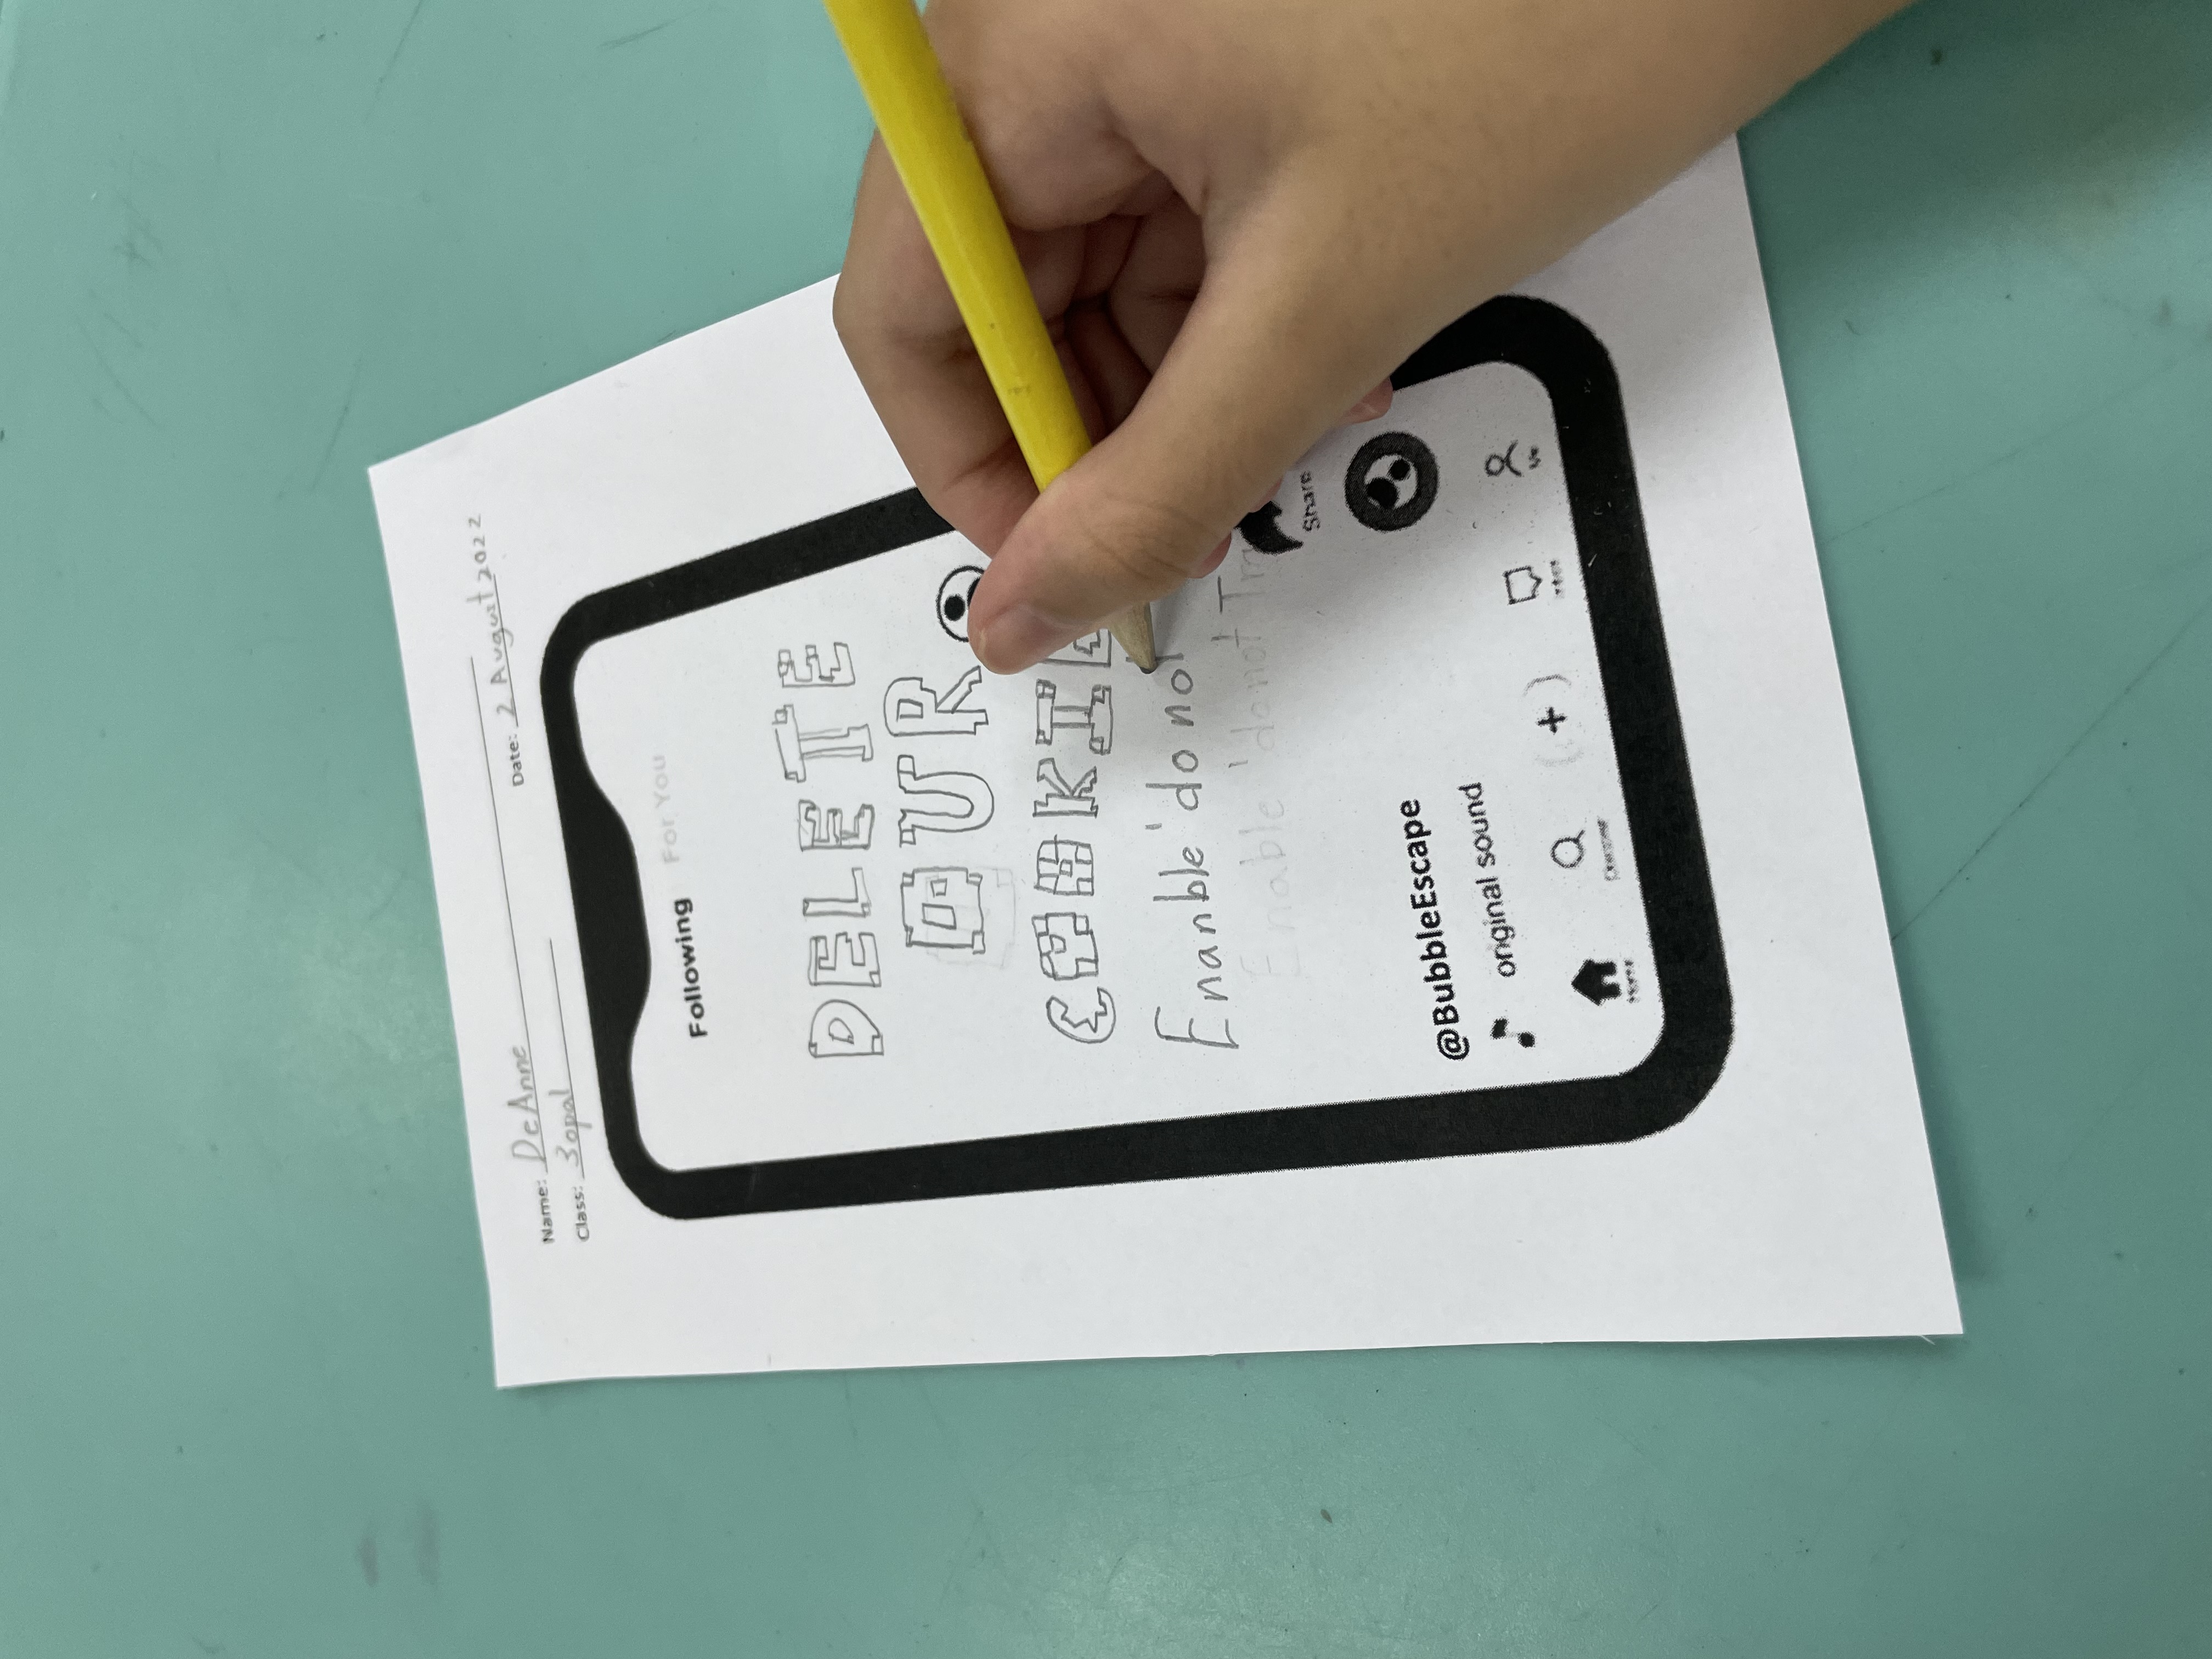 Name: DeAnne
Date: 2 August 2022
Class: 3opal
Following For You
DELETE
OUR
COOKIE
Enanble 'do not
Enable 'do not Tra
Share
@BubbleEscape
original sound
+
Home
Discover
Me